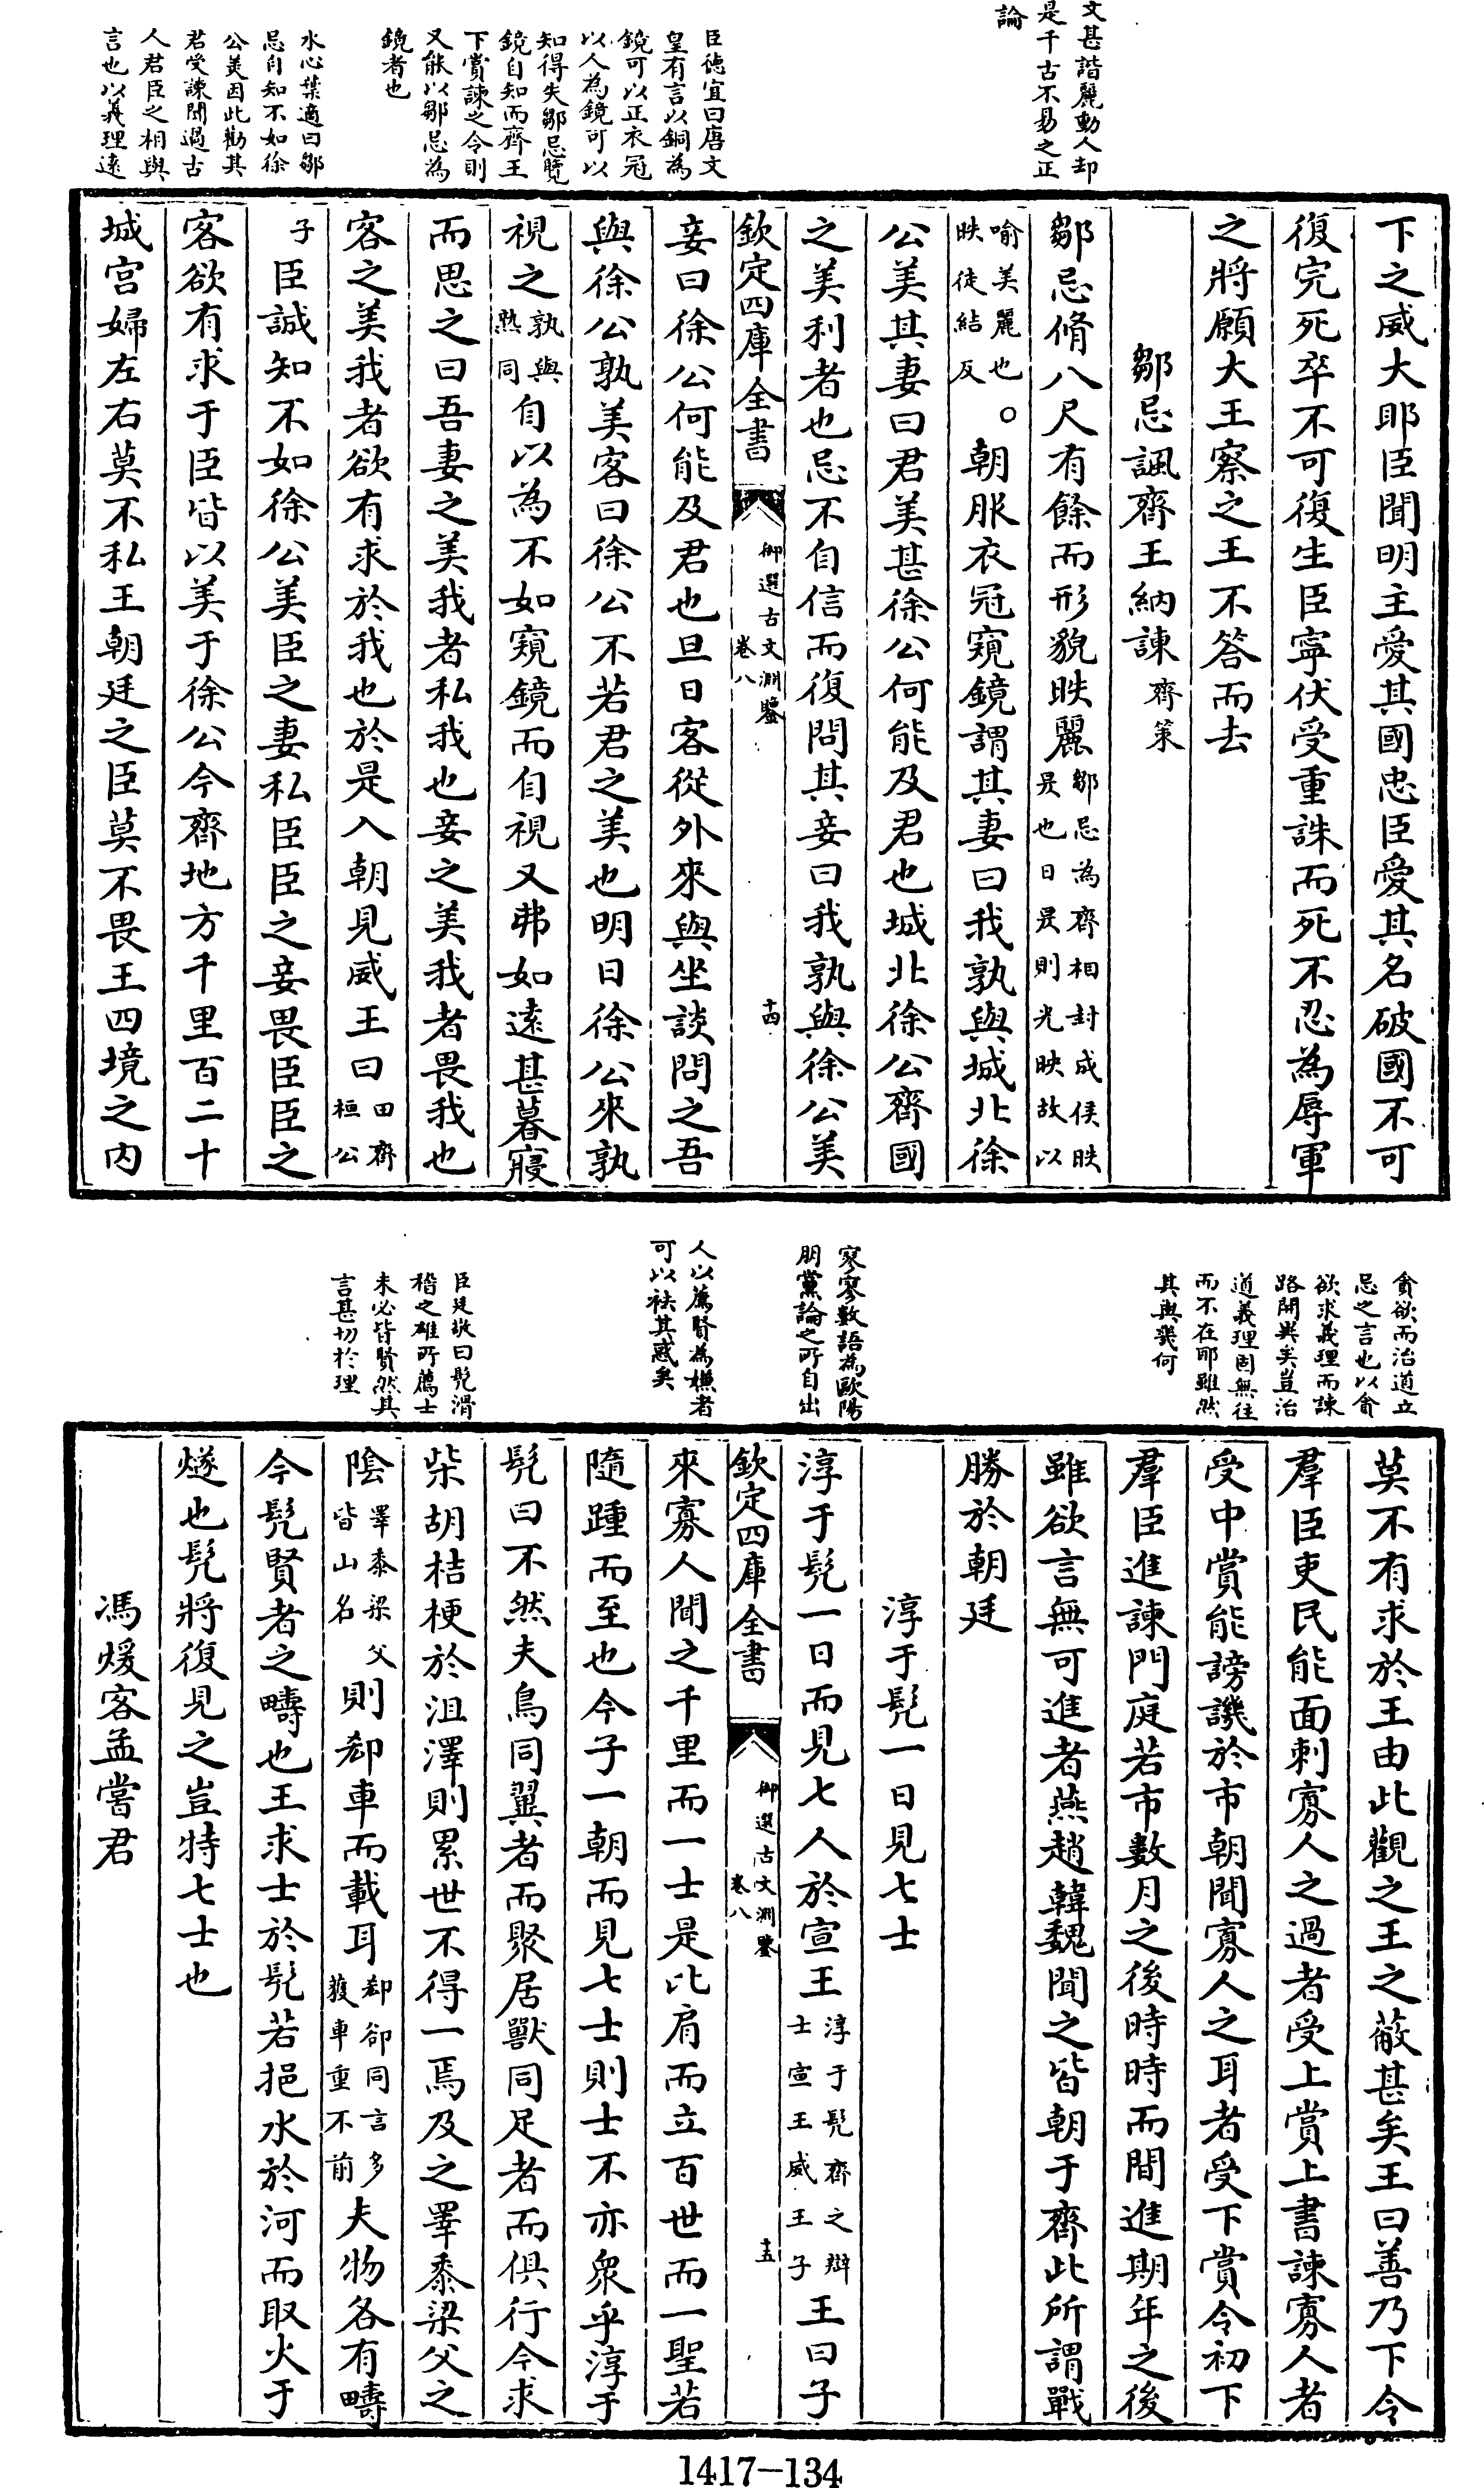 文甚諧麗動人却
是千古不易之正
論
臣德宜曰唐文
皇有言以銅為
鏡可以正衣冠
以人為鏡可以
知得失鄒忌覽
鏡自知而齊王
下賞諫之令則
又能以鄒忌為
鏡者也
水心葉適曰鄒
忌自知不如徐
公美因此勸其
君受諫聞過古
人君臣之相與
言也以義理遠
下之威大耶臣聞明主愛其國忠臣愛其名破國不可
復完死卒不可復生臣寧伏受重誅而死不忍為辱軍
之將願大王察之王不答而去
鄒忌諷齊王納諫齊策
鄒忌脩八尺有餘而形貌昳麗鄒忌為齊相封成侯昳昃也日昃則光映故以
喻美麗也昳徒結反。朝服衣冠窺鏡謂其妻曰我孰與城北徐
公美其妻曰君美甚徐公何能及君也城北徐公齊國
之美利者也忌不自信而復問其妾曰我孰與徐公美
欽定四庫全書
御選古文淵鑒
卷八
十四
妾曰徐公何能及君也旦日客從外來與坐談問之吾
與徐公孰美客曰徐公不若君之美也明日徐公來孰
視之孰與熟同自以為不如窺鏡而自視又弗如遠甚暮寢
而思之曰吾妻之美我者私我也妾之美我者畏我也
客之美我者欲有求於我也於是入朝見威王曰田齊桓公
子臣誠知不如徐公美臣之妻私臣臣之妾畏臣臣之
客欲有求于臣皆以美于徐公今齊地方千里百二十
城宮婦左右莫不私王朝廷之臣莫不畏王四境之內
貪欲而治道立
忌之言也以貪
欲求義理而諫
路開興矣豈治
道義理固無往
而不在耶雖然
其與幾何
寥寥數語為歐陽
朋黨論之所自出
人以薦賢為嫌者
可以袪其惑矣
臣廷敬曰髡滑
稽之雄所薦士
未必皆賢然其
言甚切於理
莫不有求於王由此觀之王之蔽甚矣王曰善乃下令
羣臣吏民能面刺寡人之過者受上賞上書諫寡人者
受中賞能謗譏於市朝聞寡人之耳者受下賞令初下
羣臣進諫門庭若市數月之後時時而間進期年之後
雖欲言無可進者燕趙韓魏聞之皆朝于齊此所謂戰
勝於朝廷
淳于髡一日見七士
淳于髡一日而見七人於宣王淳于髡齊之辯士宣王威王子王曰子
欽定四庫全書
御選古文淵鑒
卷八
十五
來寡人聞之千里而一士是比肩而立百世而一聖若
隨踵而至也今子一朝而見七士則士不亦衆乎淳于
髡曰不然夫鳥同翼者而聚居獸同足者而俱行今求
柴胡桔梗於沮澤則累世不得一焉及之睪黍梁父之
陰睪黍梁父皆山名則郄車而載耳郄卻同言多獲車重不前夫物各有疇
今髡賢者之疇也王求士於髡若挹水於河而取火于
燧也髡將復見之豈特七士也
馮煖客孟嘗君
1417-134